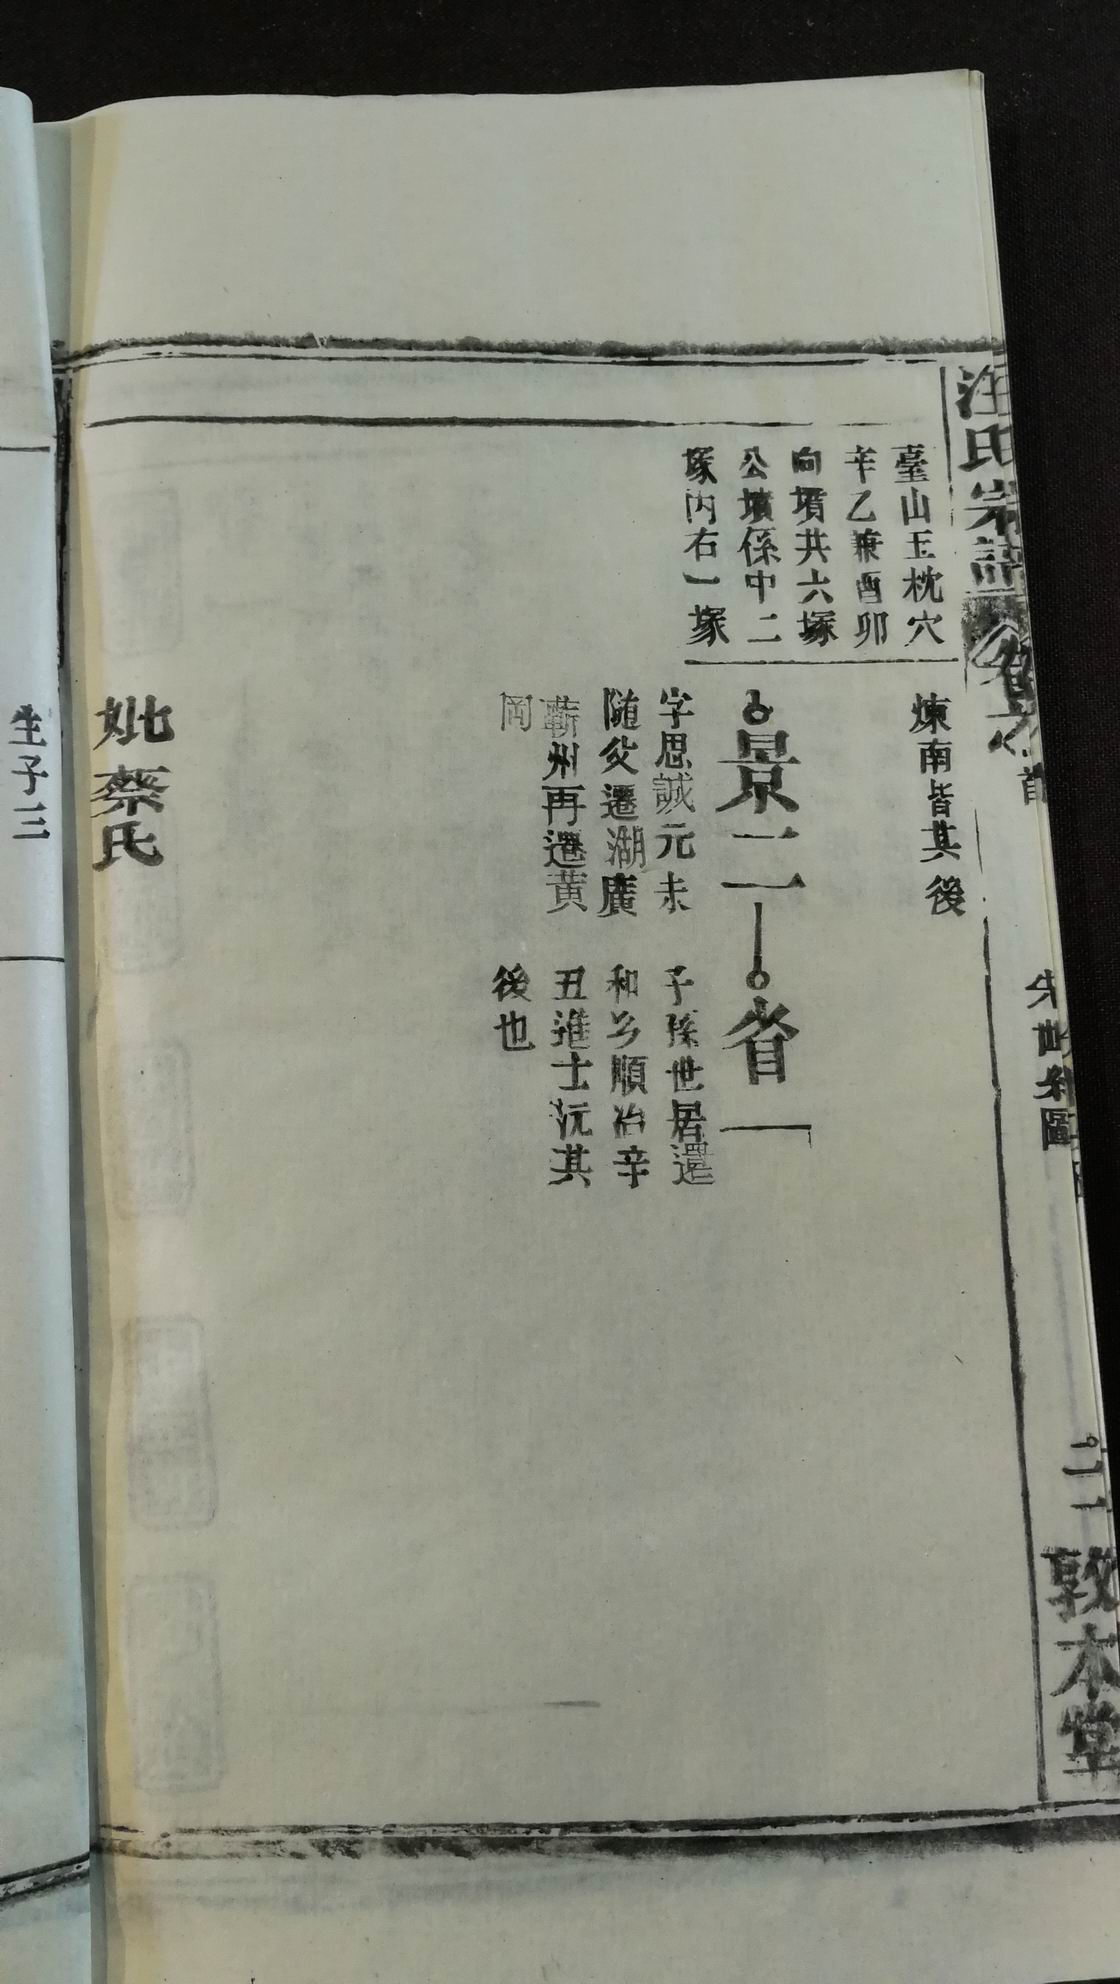 汪氏宗譜
卷六
首
敦本堂
臺山玉枕穴
辛乙兼酉卯
向墳共六塚
公墳係中二
塚內右一塚
煉南皆其後
景二
省一
字思誠元末
隨父遷湖廣
蘄州再遷黃
岡
子孫世居還
和乡順治辛
丑進士沅其
後也
妣蔡氏
生子三